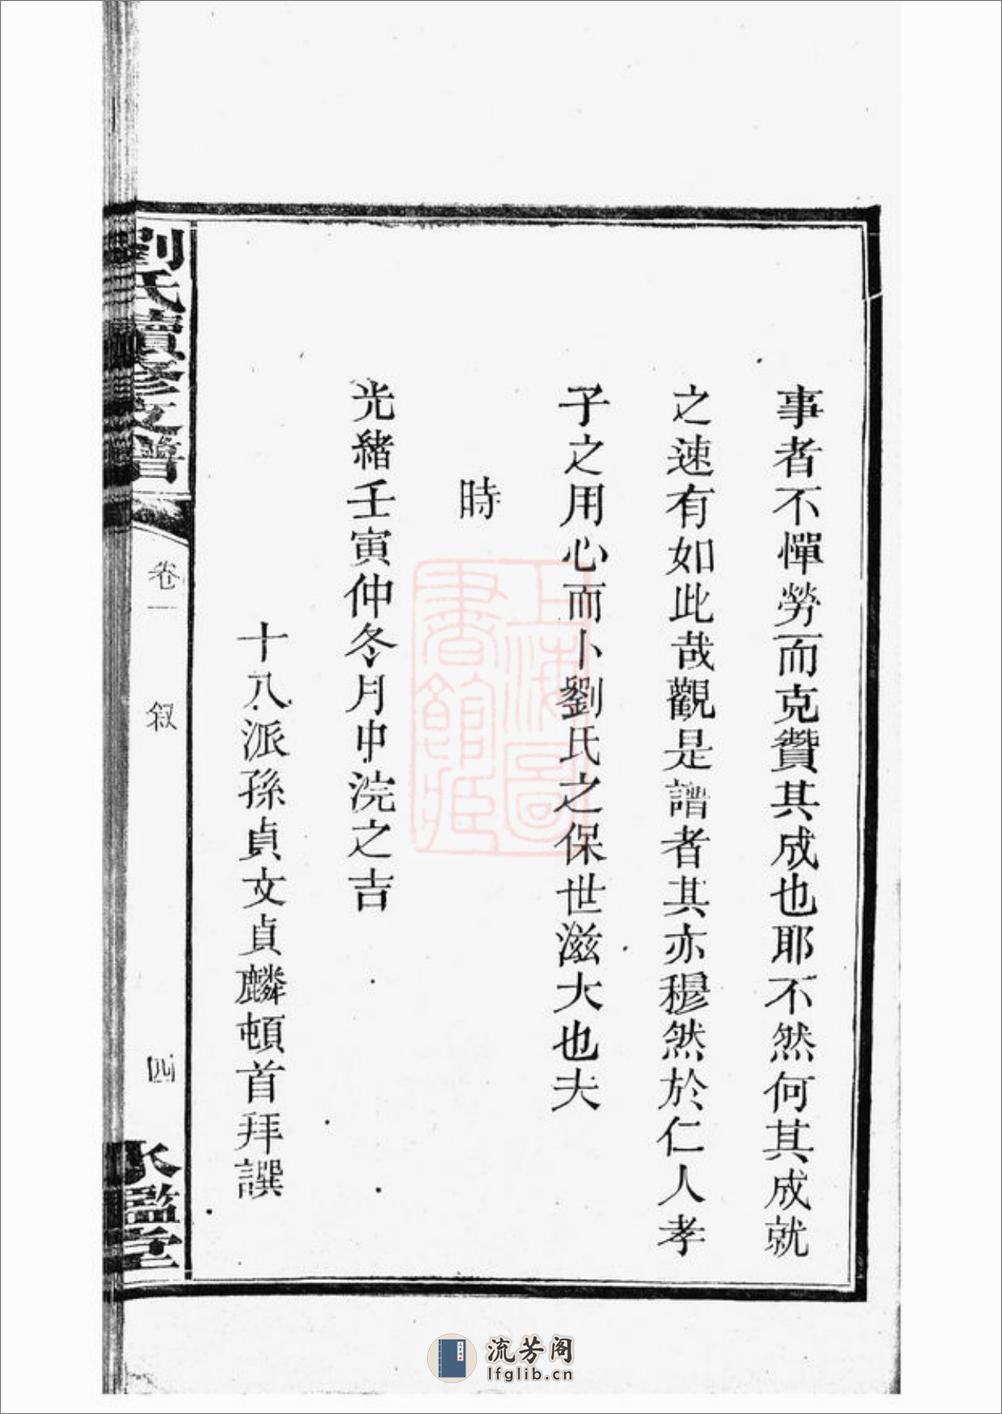 事者不憚勞而克贊其成也耶不然何其成就
之速有如此哉觀是譜者其亦穆然於仁人孝
子之用心而卜劉氏之保世滋大也夫
時
光緒壬寅仲冬月中浣之吉
十八派孫貞文貞麟頓首拜譔
劉氏續修支譜
卷一
叙
四
水鑑堂
上海圖
書館藏
流芳阁
lfglib.cn